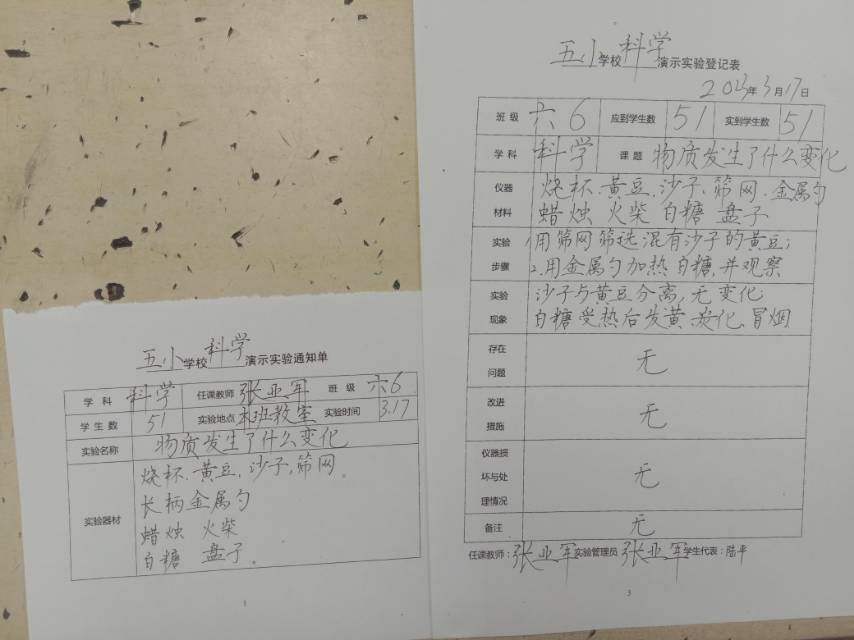 五小学校科学演示实验通知单
学科 科学 任课教师 张亚军 班级 六6
学生数 51 实验地点 本班教室 实验时间 3.17
实验名称 物质发生了什么变化
实验器材 烧杯、黄豆、沙子、筛网、
长柄金属勺
蜡烛 火柴
白糖 盘子。
1
五小学校科学演示实验登记表
2023年3月17日
班级 六6 应到学生数 51 实到学生数 51
学科 科学 课题 物质发生了什么变化
仪器材料 烧杯、黄豆、沙子、筛网、金属勺
蜡烛 火柴 白糖 盘子
实验步骤 1.用筛网筛选混有沙子的黄豆;
2.用金属勺加热白糖,并观察
实验现象 沙子与黄豆分离,无变化
白糖受热后发黄、融化、冒烟
存在问题 无
改进措施 无
仪器损坏与处理情况 无
备注 无
任课教师:张亚军 实验管理员 张亚军 学生代表:陆平
3